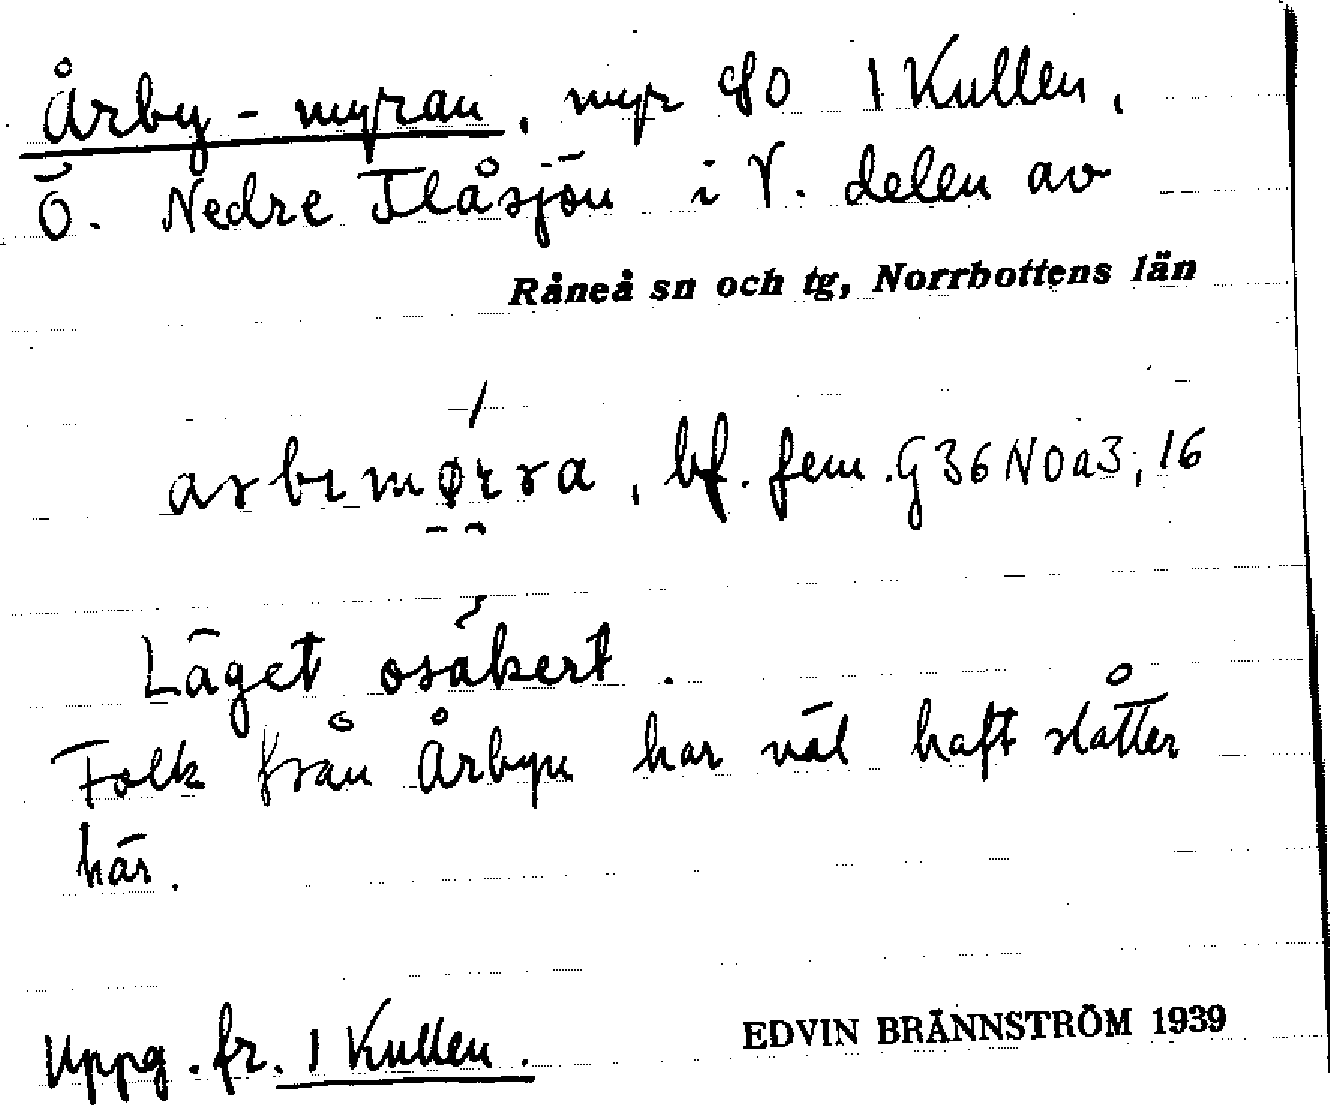 Årby-myran, myr SO 1 Kullen,
Ö. Nedre Flåsjön i V. delen av
Råneå sn och tg, Norrbottens län
bf. fem. G36NOa3, 16
Läget osäkert.
Folk från Årbyn har väl haft slåtter
här.
Uppg. fr. 1 Kullen.
EDVIN BRÄNNSTRÖM 1939